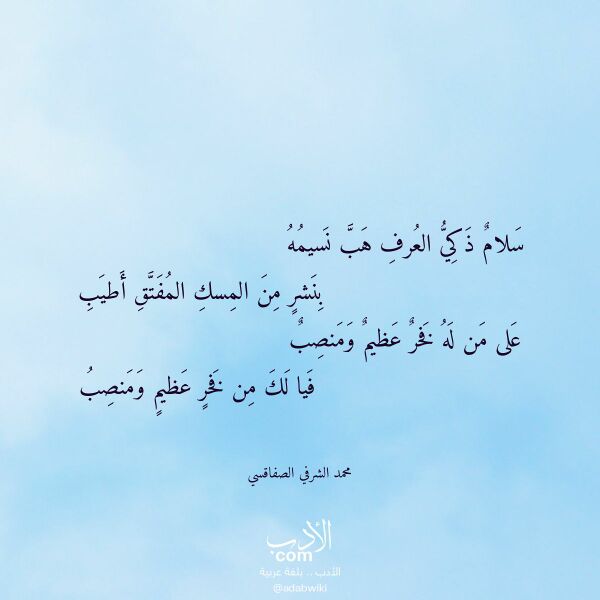 سَلامٌ ذَكِيُّ العُرفِ هَبَّ نَسيمُهُ
بِنَشرٍ مِنَ المِسكِ المُفَتَّقِ أَطيَبِ
عَلى مَن لَهُ فَخرٌ عَظيمٌ وَمَنصِبٌ
فَيا لَكَ مِن فَخرٍ عَظيمٍ وَمَنصِبُ
محمد الشرفي الصفاقسي
الأدب
.com
الأدب .. بلغة عربية
@adabwiki